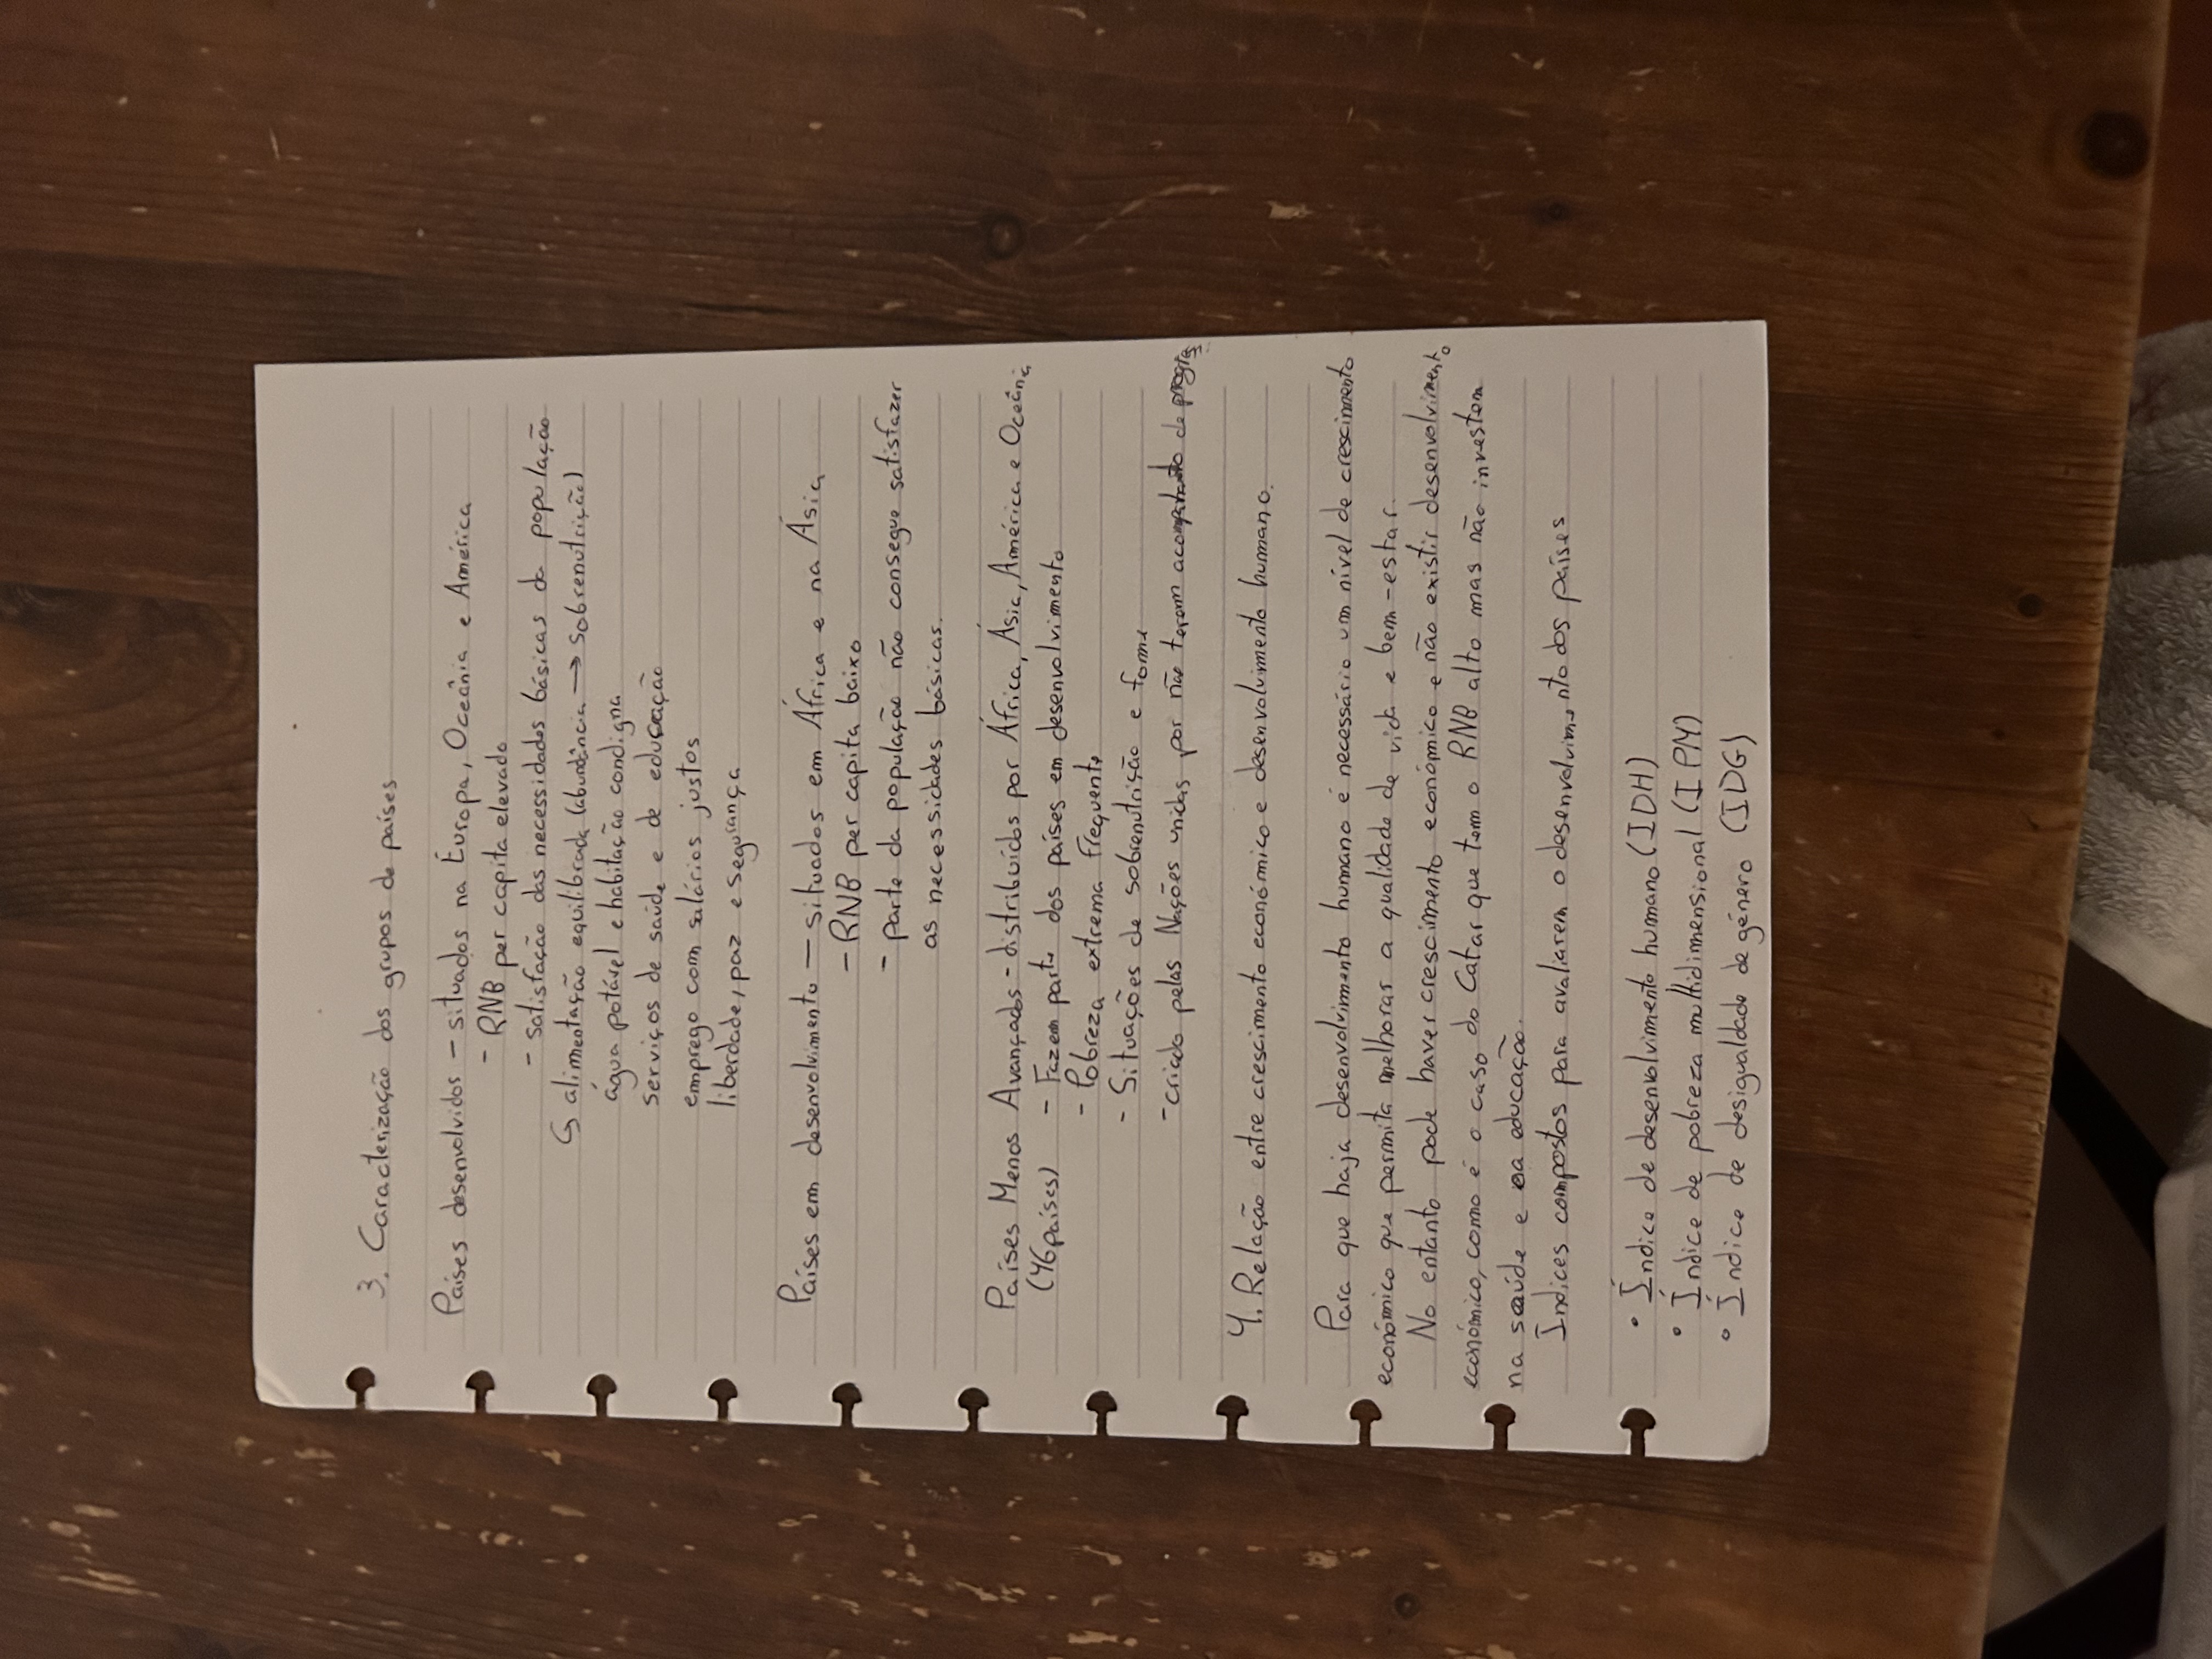 3. Caracterização dos grupos de países
Países desenvolvidos - situados na Europa, Oceânia e América
- RNB per capita elevado
- satisfação das necessidades básicas da população
↳ alimentação equilibrada (abundância → sobrenutrição)
água potável e habitação condigna
serviços de saúde e de educação
emprego com salários justos
liberdade, paz e segurança
Países em desenvolvimento - situados em África e na Ásia
- RNB per capita baixo
- parte da população não consegue satisfazer
as necessidades básicas.
Países Menos Avançados - distribuídos por África, Ásia, América e Oceânia
(46 países) - Fazem parte dos países em desenvolvimento
- Pobreza extrema frequente
- Situações de sobrenutrição e fome
- criado pelas Nações unidas por não terem acompanhado
4. Relação entre crescimento económico e desenvolvimento humano.
Para que haja desenvolvimento humano é necessário um nível de crescimento
económico que permita melhorar a qualidade de vida e bem-estar.
No entanto pode haver crescimento económico e não existir desenvolvimento
económico, como é o caso do Catar que tem o RNB alto mas não investem
na saúde e na educação.
Índices compostos para avaliarem o desenvolvimento dos países
• Índice de desenvolvimento humano (IDH)
• Índice de pobreza multidimensional (IPM)
• Índice de desigualdade de género (IDG)